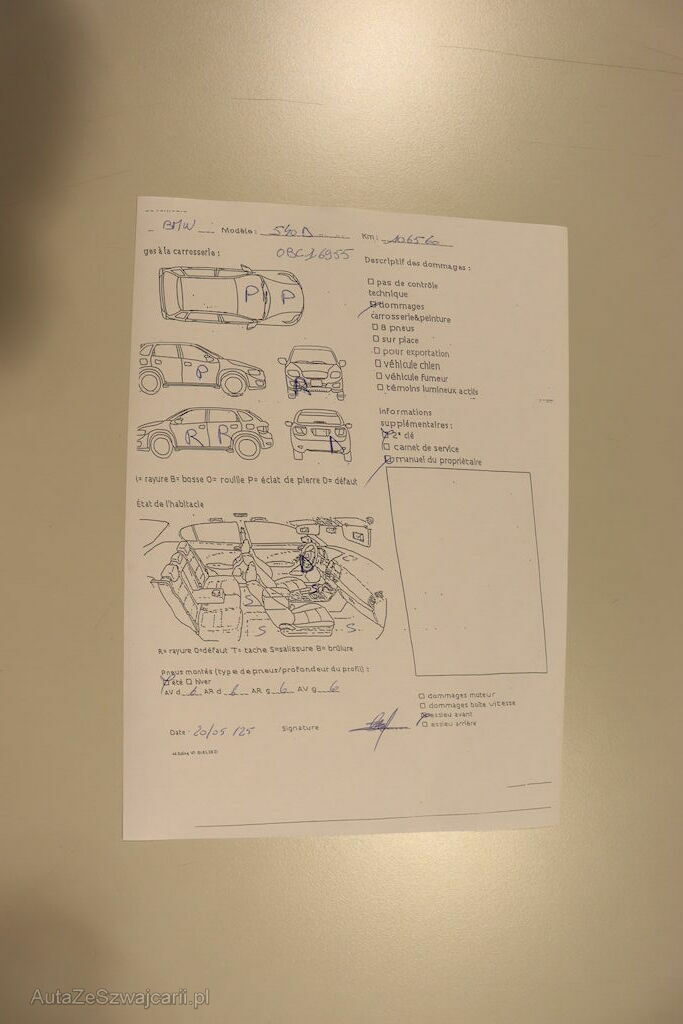 BMW Modèle: 540 D Km: 106560
ges à la carrosserie :
0BC16955
P P
P
R
R B
D
= rayure B= bosse O= rouille P= éclat de pierre D= défaut
État de l'habitacle
D
S
S
S S
R= rayure D=défaut T= tache S=salissure B= brûlure
Pneus montés (type de pneus/profondeur du profil) :
été hiver
AV d 6 AR d 6 AR g 6 AV g 6
Date: 20/05/25 Signature
Descriptif des dommages :
pas de contrôle
technique
dommages
carrosserie&peinture
8 pneus
sur place
pour exportation
véhicule chien
véhicule fumeur
témoins lumineux actifs
informations
supplémentaires :
2e clé
carnet de service
manuel du propriétaire
dommages moteur
dommages boîte vitesse
essieu avant
essieu arrière
AutaZeSzwajcarii.pl